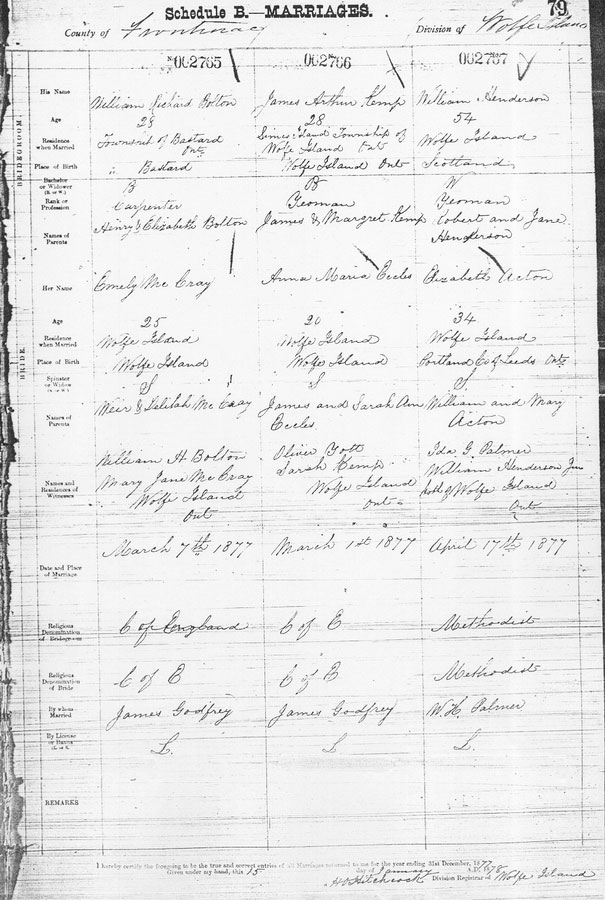 Schedule B.—MARRIAGES.
79
County of Frontenac
Division of Wolfe Island
002765
002766
002767
BRIDEGROOM.
His Name
William Richard Bolton
James Arthur Kemp
William Henderson
Age
28
28
54
Residence
when Married
Township of Bastard
Ont
Simcoe Island Township of
Wolfe Island Ont
Wolfe Island
Place of Birth
" Bastard
Wolfe Island Ont
Scotland
Bachelor
or Widower
(B. or W.)
B
B
W
Rank or
Profession
Carpenter
Yeoman
Yeoman
Names of
Parents
Henry & Elizabeth Bolton
James & Margret Kemp
Robert and Jane
Henderson
BRIDE.
Her Name
Emely Mc Cray
Anna Maria Eccles
Elizabeth Acton
Age
25
20
34
Residence
when Married
Wolfe Island
Wolfe Island
Wolfe Island
Place of Birth
Wolfe Island
Wolfe Island
Portland Co of Leeds Ont
Spinster
or Widow
(S. or W.)
S
S
S
Names of
Parents
Weir & Delilah Mc Cray
James and Sarah Ann
Eccles
William and Mary
Acton
Names and
Residences of
Witnesses
William H Bolton
Mary Jane Mc Cray
Wolfe Island
Ont
Oliver Yott
Sarah Kemp
Wolfe Island
Ont
Ida G. Palmer
William Henderson Jun
both of Wolfe Island
Ont
Date and Place
of Marriage
March 7th 1877
March 1st 1877
April 17th 1877
Religious
Denomination
of Bridegroom
C of England
C of E
Methodist
Religious
Denomination
of Bride
C of E
C of E
Methodist
By whom
Married
James Godfrey
James Godfrey
W. H. Palmer
By License
or Banns
(L. or B.)
L.
L
L.
REMARKS
I hereby certify the foregoing to be the true and correct entries of all Marriages returned to me for the year ending 31st December, 1877
Given under my hand, this 15 day of January A.D. 1878
H O Hitchcock Division Registrar of Wolfe Island